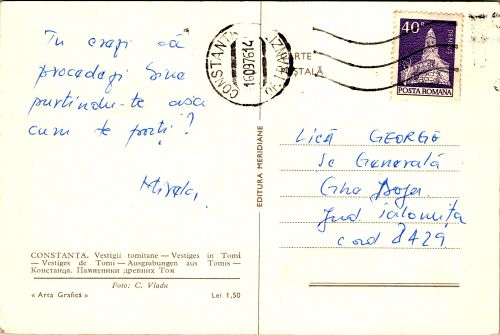 Tu crezi că
procedezi bine
purtîndu-te așa
cum te porți?
Mirela.
CONSTANTA
16097614
CARTE
POȘTALĂ
40
POSTA ROMANA
EDITURA MERIDIANE
Lică GEORGE
Sc Generală
Ghe Doja
Jud ialomița
cod 8429
CONSTANȚA. Vestigii tomitane — Vestiges in Tomi
— Vestiges de Tomi — Ausgrabungen aus Tomis —
Констанца. Памятники древних Том
Foto: C. Vladu
« Arta Grafică »
Lei 1,50